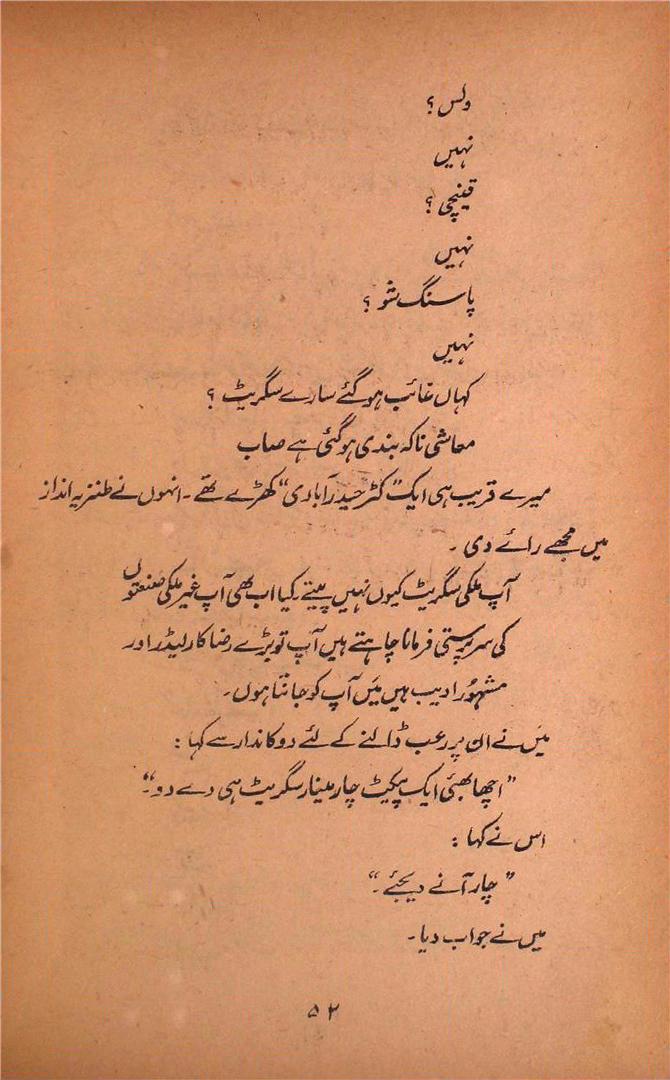 ولس؟
نہیں
قینچی؟
نہیں
پاسنگ شو؟
نہیں
کہاں غائب ہو گئے سارے سگریٹ؟
معاشی ناکہ بندی ہو گئی ہے صاب
میرے قریب ہی ایک "کٹر حیدرآبادی" کھڑے تھے۔ انہوں نے طنزیہ انداز
میں مجھے رائے دی۔
آپ ملکی سگریٹ کیوں نہیں پیتے۔ کیا اب بھی آپ غیر ملکی صنعتوں
کی سرپرستی فرمانا چاہتے ہیں آپ تو بڑے رضا کار لیڈر اور
مشہور ادیب ہیں میں آپ کو جانتا ہوں۔
میں نے ان پر رعب ڈالنے کے لئے دوکاندار سے کہا:
"اچھا بھئی ایک پیکیٹ چار مینار سگریٹ ہی دے دو۔"
اس نے کہا:
"چار آنے دیجئے۔"
میں نے جواب دیا۔
۵۲